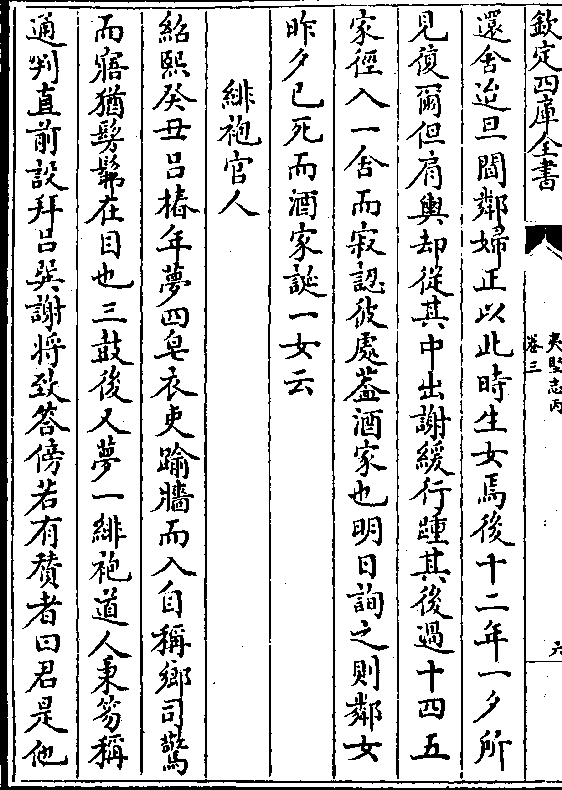 欽定四庫全書
夷堅志丙
卷三
六
還舍迨旦聞鄰婦正以此時生女焉後十二年一夕所
見復爾但肩輿却從其中出謝緩行踵其後過十四五
家徑入一舍而寂認彼處葢酒家也明日詢之則鄰女
昨夕已死而酒家誕一女云
緋袍官人
紹熙癸丑吕椿年夢四皂衣吏踰牆而入自稱鄉司驚
而寤猶髣髴在目也三鼓後又夢一緋袍道人秉笏稱
通判直前設拜吕巽謝將致答傍若有賛者曰君是他